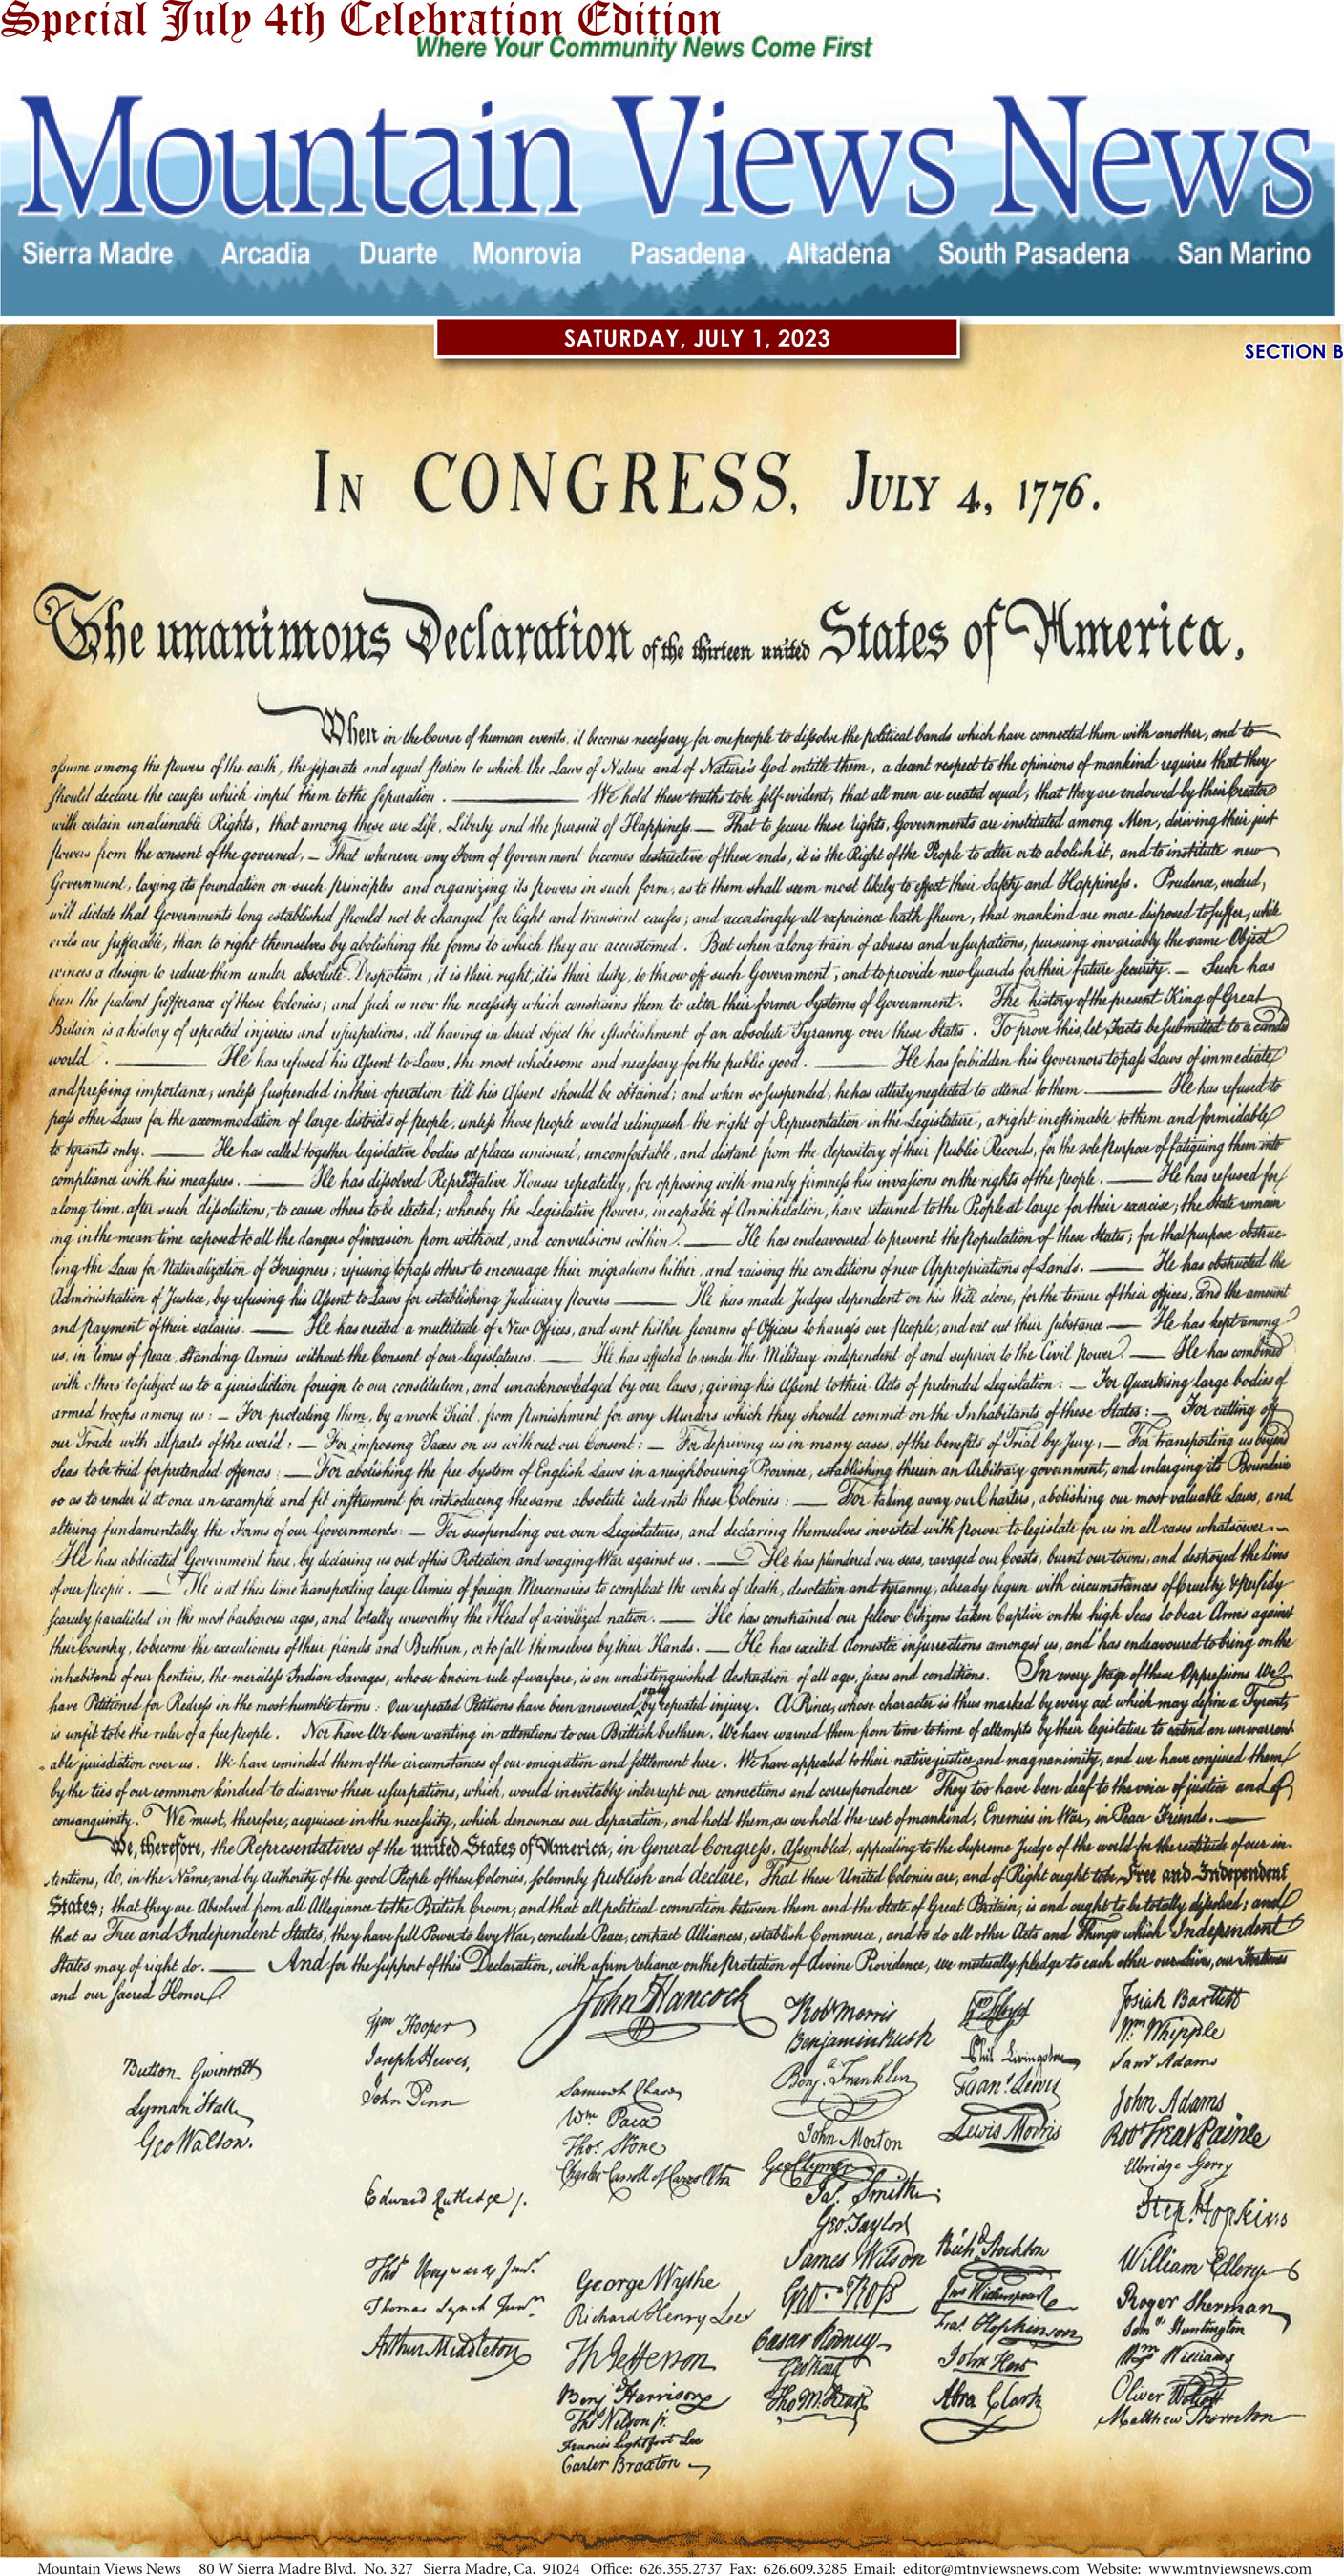 Special July 4th Celebration Edition
Where Your Community News Come First
Mountain Views News
Sierra Madre Arcadia Duarte Monrovia Pasadena Altadena South Pasadena San Marino
SATURDAY, JULY 1, 2023
SECTION B
In CONGRESS, July 4, 1776.
The unanimous Declaration of the thirteen united States of America,
When in the Course of human events, it becomes necessary for one people to dissolve the political bands which have connected them with another, and to
assume among the powers of the earth, the separate and equal station to which the Laws of Nature and of Nature's God entitle them, a decent respect to the opinions of mankind requires that they
should declare the causes which impel them to the separation. We hold these truths to be self-evident, that all men are created equal, that they are endowed by their Creator
with certain unalienable Rights, that among these are Life, Liberty and the pursuit of Happiness.— That to secure these rights, Governments are instituted among Men, deriving their just
powers from the consent of the governed, — That whenever any Form of Government becomes destructive of these ends, it is the Right of the People to alter or to abolish it, and to institute new
Government, laying its foundation on such principles and organizing its powers in such form, as to them shall seem most likely to effect their Safety and Happiness. Prudence, indeed,
will dictate that Governments long established should not be changed for light and transient causes; and accordingly all experience hath shewn, that mankind are more disposed to suffer, while
evils are sufferable, than to right themselves by abolishing the forms to which they are accustomed. But when a long train of abuses and usurpations, pursuing invariably the same Object
evinces a design to reduce them under absolute Despotism, it is their right, it is their duty, to throw off such Government, and to provide new Guards for their future security.— Such has
been the patient sufferance of these Colonies; and such is now the necessity which constrains them to alter their former Systems of Government. The history of the present King of Great
Britain is a history of repeated injuries and usurpations, all having in direct object the establishment of an absolute Tyranny over these States. To prove this, let Facts be submitted to a candid
world. He has refused his Assent to Laws, the most wholesome and necessary for the public good. He has forbidden his Governors to pass Laws of immediate
and pressing importance, unless suspended in their operation till his Assent should be obtained; and when so suspended, he has utterly neglected to attend to them. He has refused to
pass other Laws for the accommodation of large districts of people, unless those people would relinquish the right of Representation in the Legislature, a right inestimable to them and formidable
to tyrants only. He has called together legislative bodies at places unusual, uncomfortable, and distant from the depository of their Public Records, for the sole purpose of fatiguing them into
compliance with his measures. He has dissolved Representative Houses repeatedly, for opposing with manly firmness his invasions on the rights of the people. He has refused for
a long time, after such dissolutions, to cause others to be elected; whereby the Legislative powers, incapable of Annihilation, have returned to the People at large for their exercise; the State remain
ing in the mean time exposed to all the dangers of invasion from without, and convulsions within. He has endeavoured to prevent the population of these States; for that purpose obstruc-
ting the Laws for Naturalization of Foreigners; refusing to pass others to encourage their migrations hither, and raising the conditions of new Appropriations of Lands. He has obstructed the
Administration of Justice, by refusing his Assent to Laws for establishing Judiciary powers. He has made Judges dependent on his Will alone, for the tenure of their offices, and the amount
and payment of their salaries. He has erected a multitude of New Offices, and sent hither swarms of Officers to harrass our people, and eat out their substance. He has kept among
us, in times of peace, Standing Armies without the Consent of our legislatures. He has affected to render the Military independent of and superior to the Civil power. He has combined
with others to subject us to a jurisdiction foreign to our constitution, and unacknowledged by our laws; giving his Assent to their Acts of pretended Legislation: — For Quartering large bodies of
armed troops among us: — For protecting them, by a mock Trial, from punishment for any Murders which they should commit on the Inhabitants of these States: — For cutting off
our Trade with all parts of the world: — For imposing Taxes on us without our Consent: — For depriving us in many cases, of the benefits of Trial by Jury; — For transporting us beyond
Seas to be tried for pretended offences: — For abolishing the free System of English Laws in a neighbouring Province, establishing therein an Arbitrary government, and enlarging its Boundaries
so as to render it at once an example and fit instrument for introducing the same absolute rule into these Colonies: — For taking away our Charters, abolishing our most valuable Laws, and
altering fundamentally the Forms of our Governments: — For suspending our own Legislatures, and declaring themselves invested with power to legislate for us in all cases whatsoever.—
He has abdicated Government here, by declaring us out of his Protection and waging War against us. He has plundered our seas, ravaged our Coasts, burnt our towns, and destroyed the lives
of our people. He is at this time transporting large Armies of foreign Mercenaries to compleat the works of death, desolation and tyranny, already begun with circumstances of Cruelty & perfidy
scarcely paralleled in the most barbarous ages, and totally unworthy the Head of a civilized nation. He has constrained our fellow Citizens taken Captive on the high Seas to bear Arms against
their Country, to become the executioners of their friends and Brethren, or to fall themselves by their Hands. He has excited domestic insurrections amongst us, and has endeavoured to bring on the
inhabitants of our frontiers, the merciless Indian Savages, whose known rule of warfare, is an undistinguished destruction of all ages, sexes and conditions. In every stage of these Oppressions We
have Petitioned for Redress in the most humble terms: Our repeated Petitions have been answered only by repeated injury. A Prince, whose character is thus marked by every act which may define a Tyrant,
is unfit to be the ruler of a free people. Nor have We been wanting in attentions to our Brittish brethren. We have warned them from time to time of attempts by their legislature to extend an unwarrant-
able jurisdiction over us. We have reminded them of the circumstances of our emigration and settlement here. We have appealed to their native justice and magnanimity, and we have conjured them
by the ties of our common kindred to disavow these usurpations, which, would inevitably interrupt our connections and correspondence. They too have been deaf to the voice of justice and of
consanguinity. We must, therefore, acquiesce in the necessity, which denounces our Separation, and hold them, as we hold the rest of mankind, Enemies in War, in Peace Friends.
We, therefore, the Representatives of the united States of America, in General Congress, Assembled, appealing to the Supreme Judge of the world for the rectitude of our in-
tentions, do, in the Name, and by Authority of the good People of these Colonies, solemnly publish and declare, That these United Colonies are, and of Right ought to be Free and Independent
States; that they are Absolved from all Allegiance to the British Crown, and that all political connection between them and the State of Great Britain, is and ought to be totally dissolved; and
that as Free and Independent States, they have full Power to levy War, conclude Peace, contract Alliances, establish Commerce, and to do all other Acts and Things which Independent
States may of right do. And for the support of this Declaration, with a firm reliance on the Protection of divine Providence, we mutually pledge to each other our Lives, our Fortunes
and our sacred Honor.
Button Gwinnett
Lyman Hall
Geo Walton.
Wm Hooper
Joseph Hewes,
John Penn
Edward Rutledge /.
Thos Heyward Junr.
Thomas Lynch Junr.
Arthur Middleton
John Hancock
Samuel Chase
Wm. Paca
Thos. Stone
Charles Carroll of Carrollton
George Wythe
Richard Henry Lee
Th Jefferson
Benj Harrison
Thos Nelson jr.
Francis Lightfoot Lee
Carter Braxton
Robt Morris
Benjamin Rush
Benj. Franklin
John Morton
Geo Clymer
Jas. Smith
Geo. Taylor
James Wilson
Geo. Ross
Caesar Rodney
Geo Read
Tho M:Kean
Wm Floyd
Phil. Livingston
Frans. Lewis
Lewis Morris
Richd. Stockton
Jno Witherspoon
Fras. Hopkinson
John Hart
Abra Clark
Josiah Bartlett
Wm. Whipple
Saml Adams
John Adams
Robt Treat Paine
Elbridge Gerry
Step. Hopkins
William Ellery
Roger Sherman
Saml Huntington
Wm Williams
Oliver Wolcott
Matthew Thornton
Mountain Views News 80 W Sierra Madre Blvd. No. 327 Sierra Madre, Ca. 91024 Office: 626.355.2737 Fax: 626.609.3285 Email: editor@mtnviewsnews.com Website: www.mtnviewsnews.com